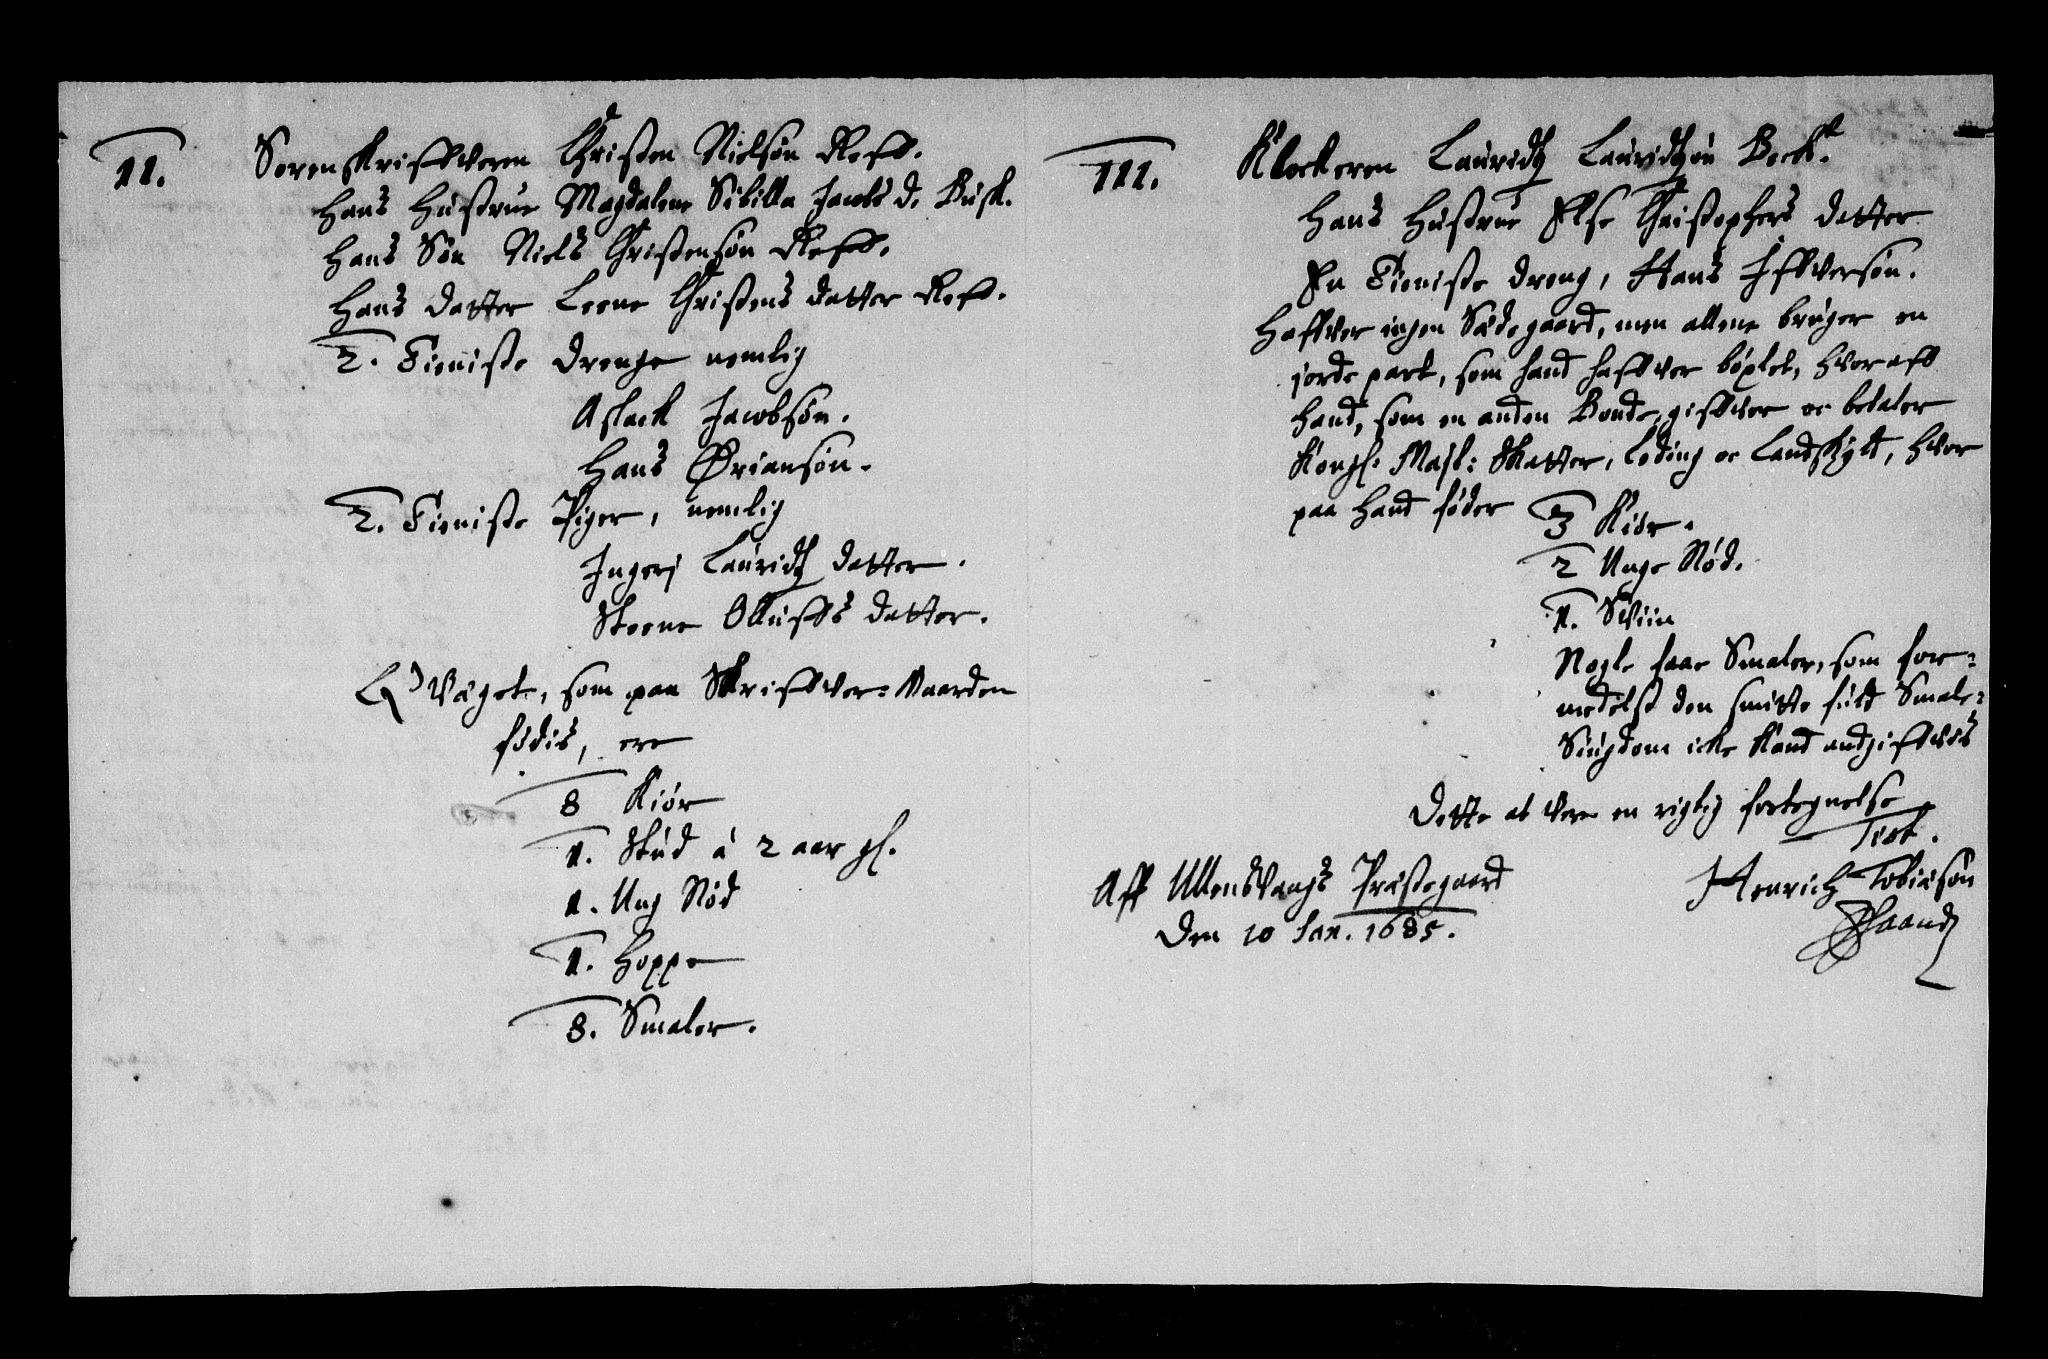 II.
Sorenskriffveren Christen Nielsøn Reff.
Hans Hustrue Magdalene Sibilla Jacobs d. Busk.
Hans Søn Niels Christensøn Reff.
Hans datter Leene Christens datter Reff.
2. Tieniste drenge nemlig
Aslack Jacobsøn.
Hans Øriansøn.
2. Tieniste Piger, nemlig
Ingeri Lauridtz datter.
Steene Olluffs datter.
Qvæget, som paa Skriffver-Gaarden
fødis, ere
8 Kiør
1. Stud á 2 aar gl.
1. Ung Nød
1. Hoppe
8. Smaler.
III.
Klockeren Lauridtz Lauridtzøn Beck.
Hans Hustrue Else Christophers datter
En Tieniste dreng, Hans Iffversøn.
Haffver ingen Sædegaard, men allene bruger en
jorde part, som hand haffver bøxlet, hvor aff
hand, som en anden Bonde, giffver oc betaler
Kongl: Majt: Skatter, leding oc Landskyld, hvor
paa hand føder 3 Kiør.
2 Unge Nød.
1. Sviin
Nogle faae Smaler, som for-
medelst den smitte fuld Smale-
Siugdom icke kand andgiffves
Dette at vere en rigtig fortegnelse
Test.
Aff Ullensvangs Præstegaard
Den 10 Jan. 1685.
Henrich Tobiæsøn